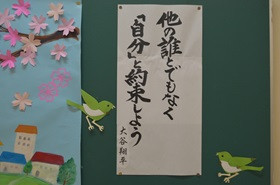 他の誰とでもなく
「自分」と約束しよう
大谷翔平